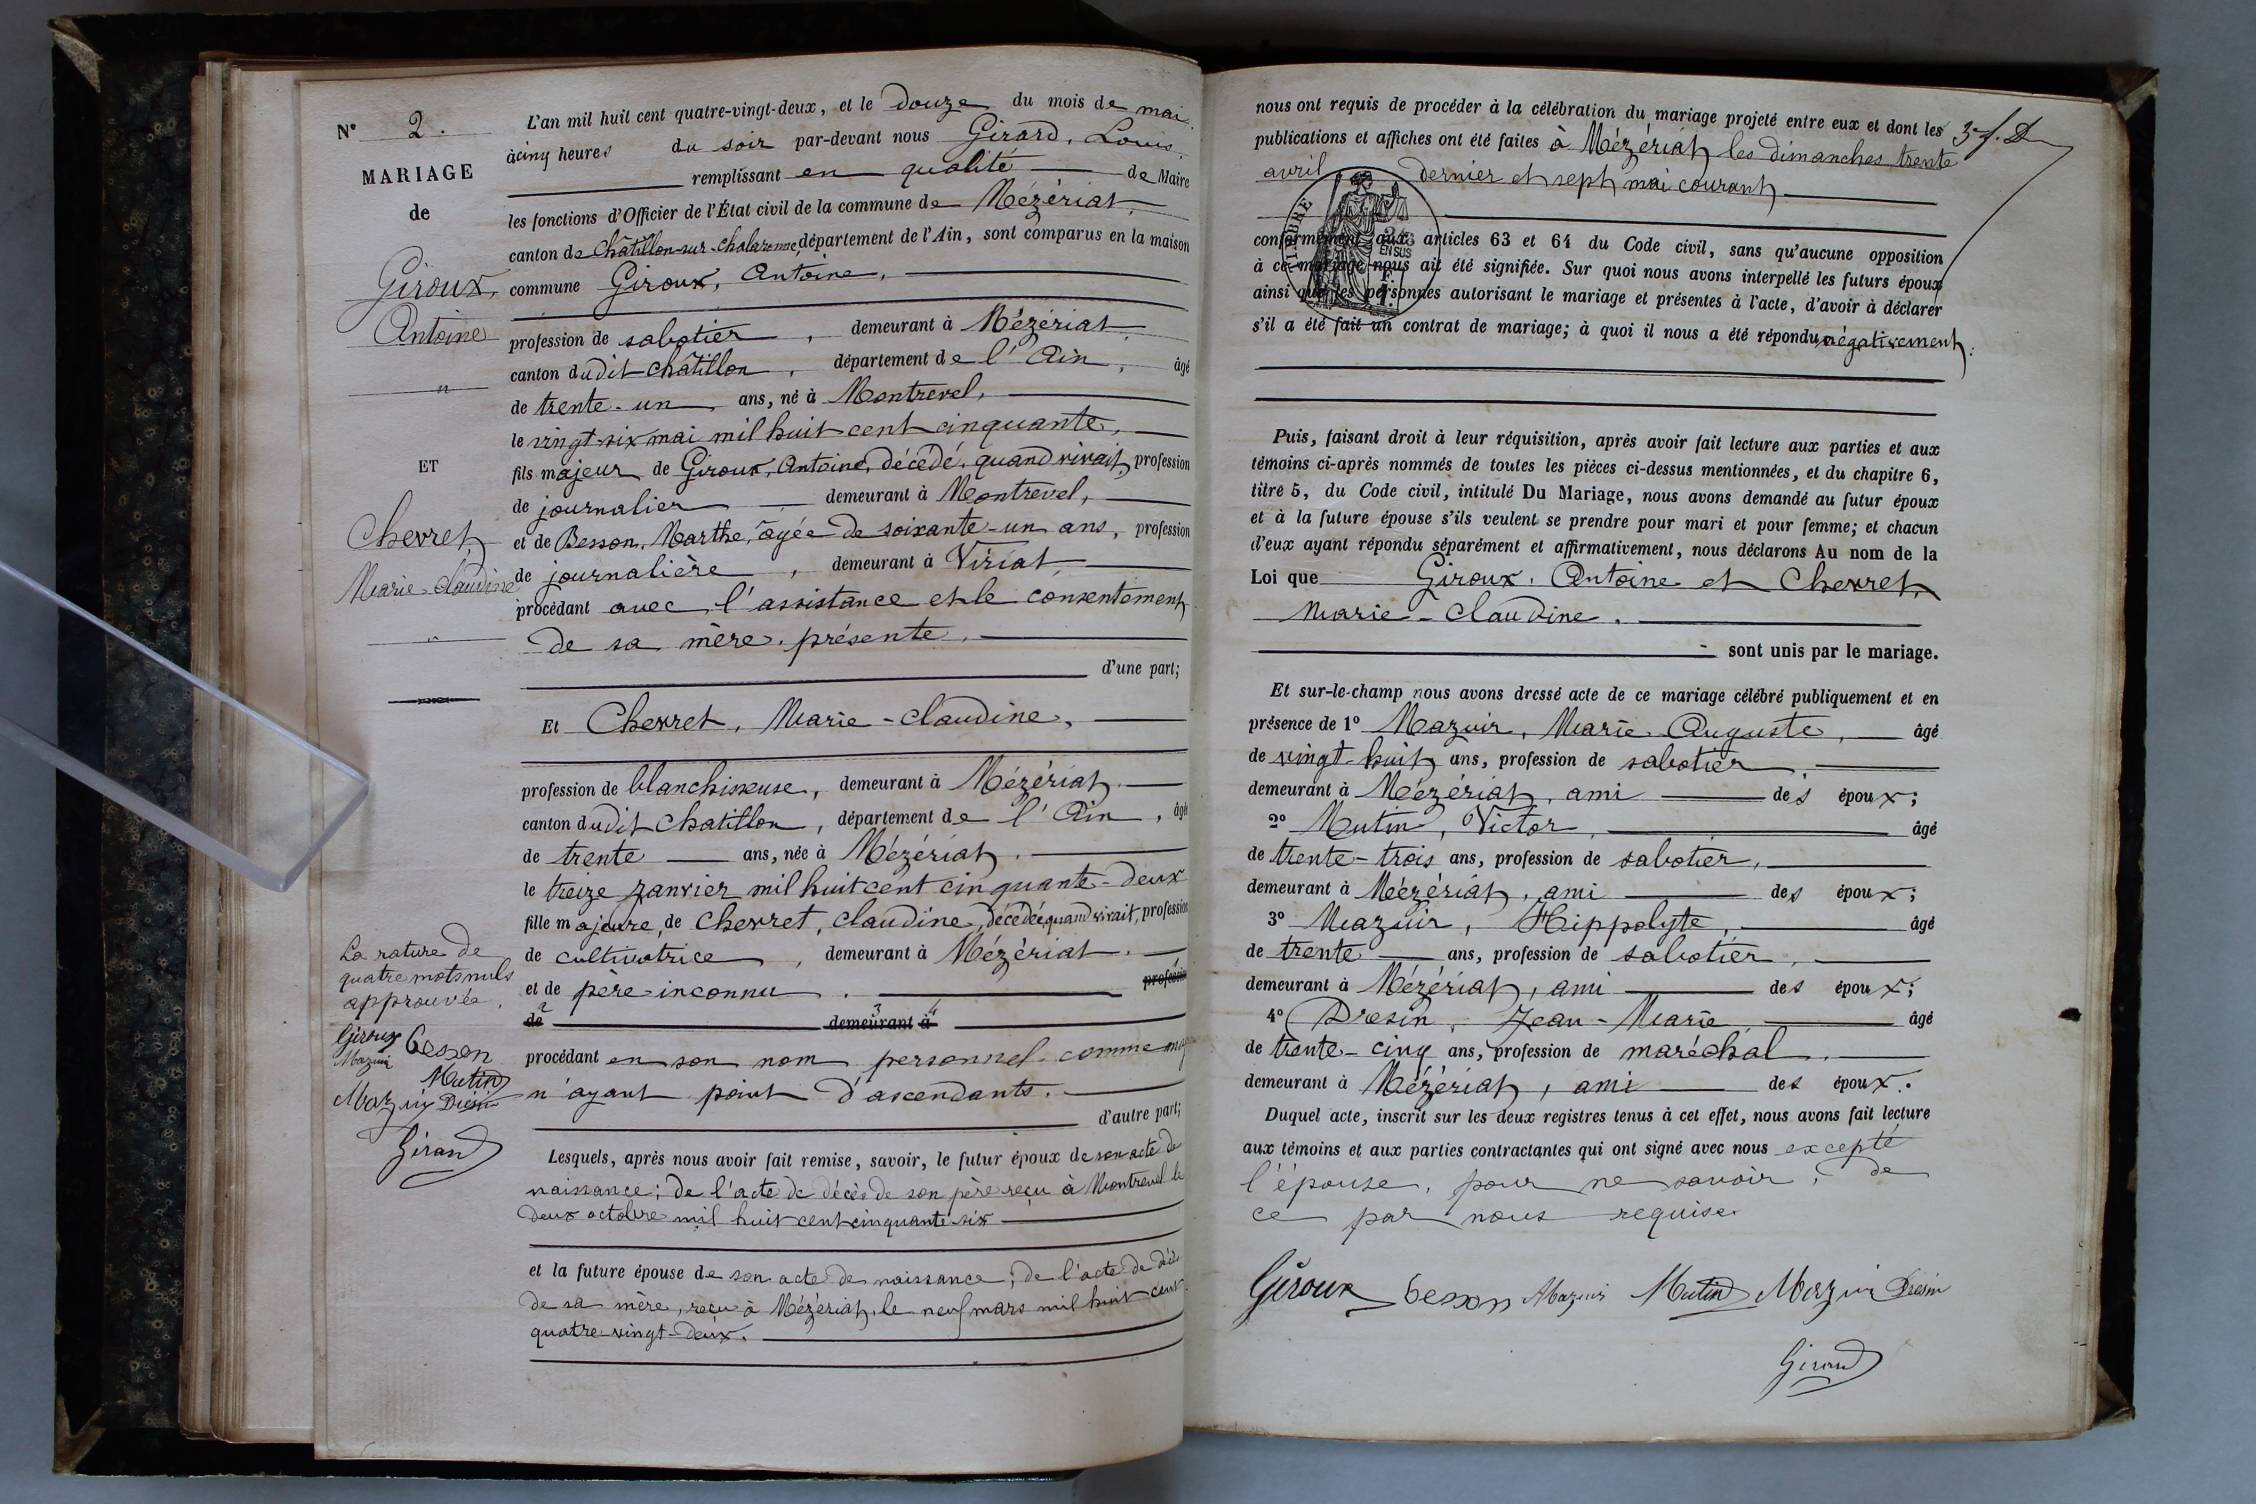 N° 2.
MARIAGE
de
Giroux,
Antoine
"
ET
Chevret,
Marie-Claudine
"
La rature de
quatre mots nuls
approuvée.
Giroux Besson
Mazuir
Mutin
Mazuir Dresin
Girard
L'an mil huit cent quatre-vingt-deux, et le douze du mois de mai,
à cinq heures du soir par-devant nous Girard, Louis,
remplissant en qualité de Maire
les fonctions d'Officier de l'État civil de la commune de Mézériat,
canton de Châtillon-sur-Chalaronne, département de l'Ain, sont comparus en la maison
commune Giroux, Antoine,
profession de sabotier, demeurant à Mézériat,
canton dudit Châtillon, département de l'Ain, âgé
de trente-un ans, né à Montrevel,
le vingt-six mai mil huit cent cinquante,
fils majeur de Giroux, Antoine, décédé, quand vivait, profession
de journalier demeurant à Montrevel,
et de Besson, Marthe, âgée de soixante-un ans, profession
de journalière, demeurant à Viriat,
procédant avec l'assistance et le consentement
de sa mère, présente,
d'une part;
Et Chevret, Marie-Claudine,
profession de blanchisseuse, demeurant à Mézériat,
canton dudit Chatillon, département de l'Ain, âgée
de trente ans, née à Mézériat,
le treize janvier mil huit cent cinquante-deux
fille majeure, de Chevret, Claudine, décédée, quand vivait, profession
de cultivatrice, demeurant à Mézériat.
et de père-inconnu. profession
de demeurant à
procédant en son nom personnel comme
n'ayant point d'ascendants.
d'autre part;
Lesquels, après nous avoir fait remise, savoir, le futur époux de son acte de
naissance; de l'acte de décès de son père reçu à Montrevel le
deux octobre mil huit cent cinquante-six
et la future épouse de son acte de naissance; de l'acte de décès
de sa mère, reçu à Mézériat, le neuf mars mil huit cent
quatre-vingt-deux.
nous ont requis de procéder à la célébration du mariage projeté entre eux et dont les
publications et affiches ont été faites à Mézériat les dimanches trente
avril dernier et sept mai courant
TIMBRE
EN SUS
conformément aux articles 63 et 64 du Code civil, sans qu'aucune opposition
à ce mariage nous ait été signifiée. Sur quoi nous avons interpellé les futurs époux
ainsi que les personnes autorisant le mariage et présentes à l'acte, d'avoir à déclarer
s'il a été fait un contrat de mariage; à quoi il nous a été répondu négativement.
Puis, faisant droit à leur réquisition, après avoir fait lecture aux parties et aux
témoins ci-après nommés de toutes les pièces ci-dessus mentionnées, et du chapitre 6,
titre 5, du Code civil, intitulé Du Mariage, nous avons demandé au futur époux
et à la future épouse s'ils veulent se prendre pour mari et pour femme; et chacun
d'eux ayant répondu séparément et affirmativement, nous déclarons Au nom de la
Loi que Giroux, Antoine et Chevret,
Marie-Claudine.
sont unis par le mariage.
Et sur-le-champ nous avons dressé acte de ce mariage célébré publiquement et en
présence de 1° Mazuir, Marie Auguste, âgé
de vingt-huit ans, profession de sabotier,
demeurant à Mézériat, ami des époux;
2° Mutin, Victor, âgé
de trente-trois ans, profession de sabotier,
demeurant à Mézériat, ami des époux;
3° Mazuir, Hippolyte, âgé
de trente ans, profession de sabotier,
demeurant à Mézériat, ami des époux;
4° Dresin, Jean-Marie, âgé
de trente-cinq ans, profession de maréchal.
demeurant à Mézériat, ami des époux.
Duquel acte, inscrit sur les deux registres tenus à cet effet, nous avons fait lecture
aux témoins et aux parties contractantes qui ont signé avec nous excepté
l'épouse, pour ne savoir, de
ce par nous requise.
Giroux Besson Mazuir Mutin Mazuir Dresin
Girard